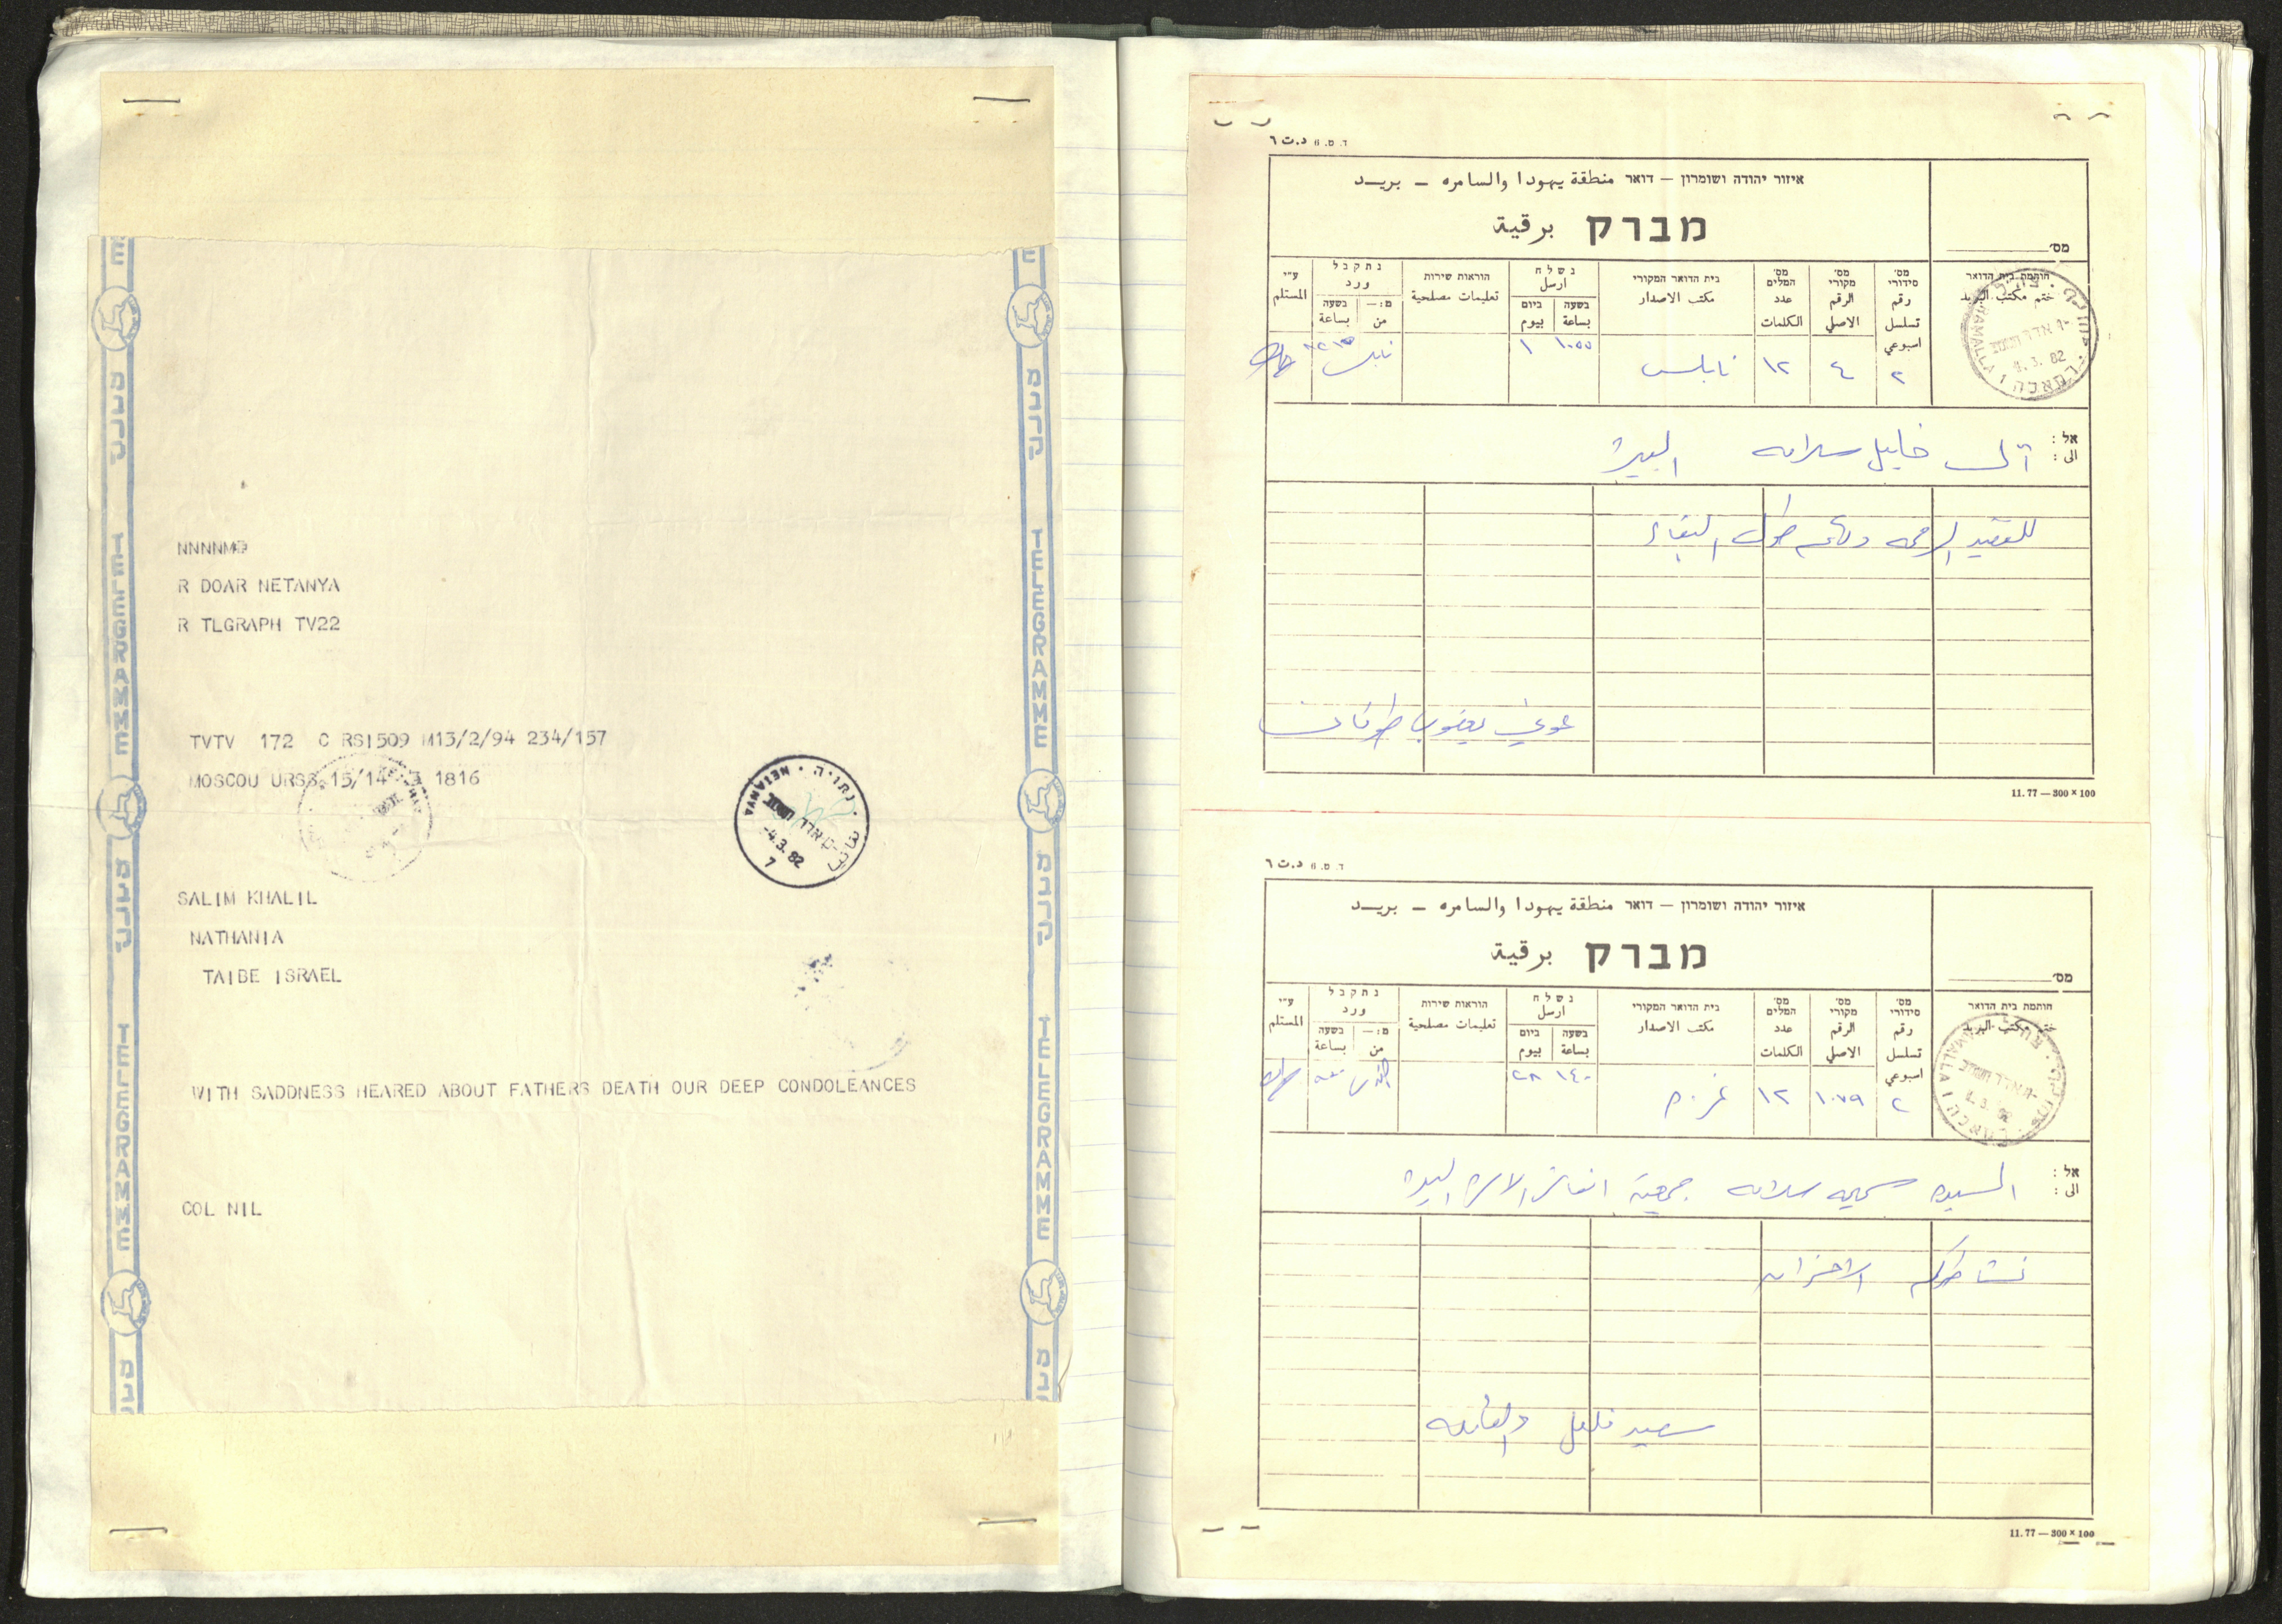 TELEGRAMME
מברק
NNNNMD
R DOAR NETANYA
R TLGRAPH TV22
TVTV 172 C RSI509 M13/2/94 234/157
MOSCOU URSS 15/14 1816
נתניה · NETANYA
-4.3.82
7
SALIM KHALIL
NATHANIA
TAIBE ISRAEL
WITH SADDNESS HEARED ABOUT FATHERS DEATH OUR DEEP CONDOLEANCES
COL NIL
ד. ס. 6 د.ت ٦
איזור יהודה ושומרון – דואר منطقة يهودا والسامره – بريد
מברק برقية
מס'
ע"י المستلم
נתקבל ورد
מ: – من
בשעה بساعة
הוראות שירות تعليمات مصلحية
נשלח ارسل
ביום بيوم
בשעה بساعة
בית הדואר המקורי مكتب الاصدار
מס' המלים عدد الكلمات
מס' מקורי الرقم الاصلي
מס' סידורי رقم تسلسل اسبوعي
חותמת בית הדואר ختم مكتب البريد
RAMALLA 1
.3.82
٢ ٤ ١٢ نابلس ١٠٥٥ ١ نابلس
אל :
الى : آل خليل سلامه البيرة
للفقيد الرحمه ولكم طول البقاء
عوني يعقوب طوقان
11.77 — 300 × 100
ד. ס. 6 د.ت ٦
איזור יהודה ושומרון – דואר منطقة يهودا والسامره – بريد
מברק برقية
מס'
ע"י المستلم
נתקבל ورد
מ: – من
בשעה بساعة
הוראות שירות تعليمات مصلحية
נשלח ارسل
ביום بيوم
בשעה بساعة
בית הדואר המקורי مكتب الاصدار
מס' המלים عدد الكلمات
מס' מקורי الرقم الاصلي
מס' סידורי رقم تسلسل اسبوعي
חותמת בית הדואר ختم مكتب البريد
RAMALLA 1
٢ ١٠٧٩ ١٢ غزه ١٤٠٠ ٢٨ القدس
אל :
الى : السيده سميحه سلامه جمعية انعاش الاسره البيره
نشاطركم الاحزان
سعيد فلفل والعائله
11.77 — 300 × 100